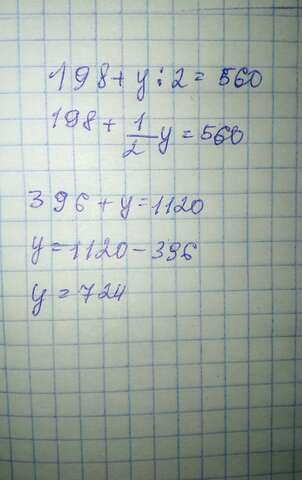 198 + y : 2 = 560
198 + 1/2 y = 560
396 + y = 1120
y = 1120 - 396
y = 724